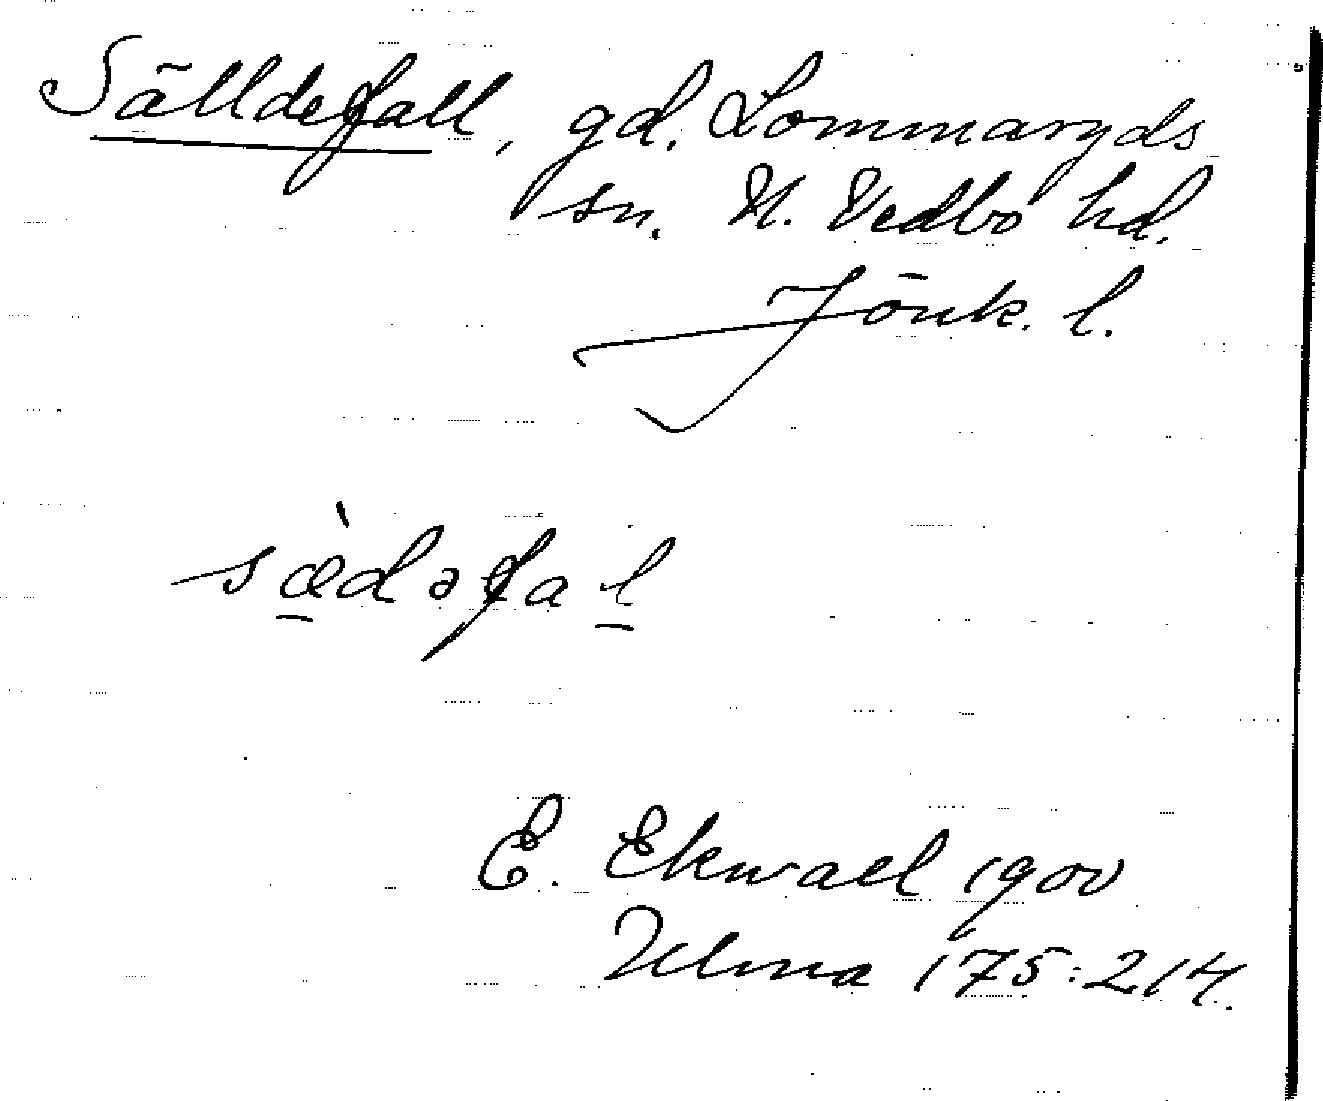 Sälldefall, gd. Lommaryds
sn. N. Vedbo hd.
Jönk. l.
sæ̀dəfal
E. Ekwall 1900
Ulma 175:214.